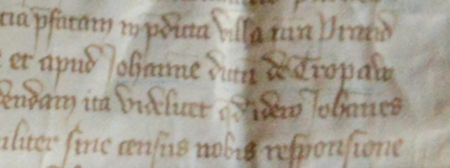 cia pfatam in pdicta villa
et apud Johanne de Tropaw
dendam ita videlicet idem Johannes
iliter sine census nobis responsione